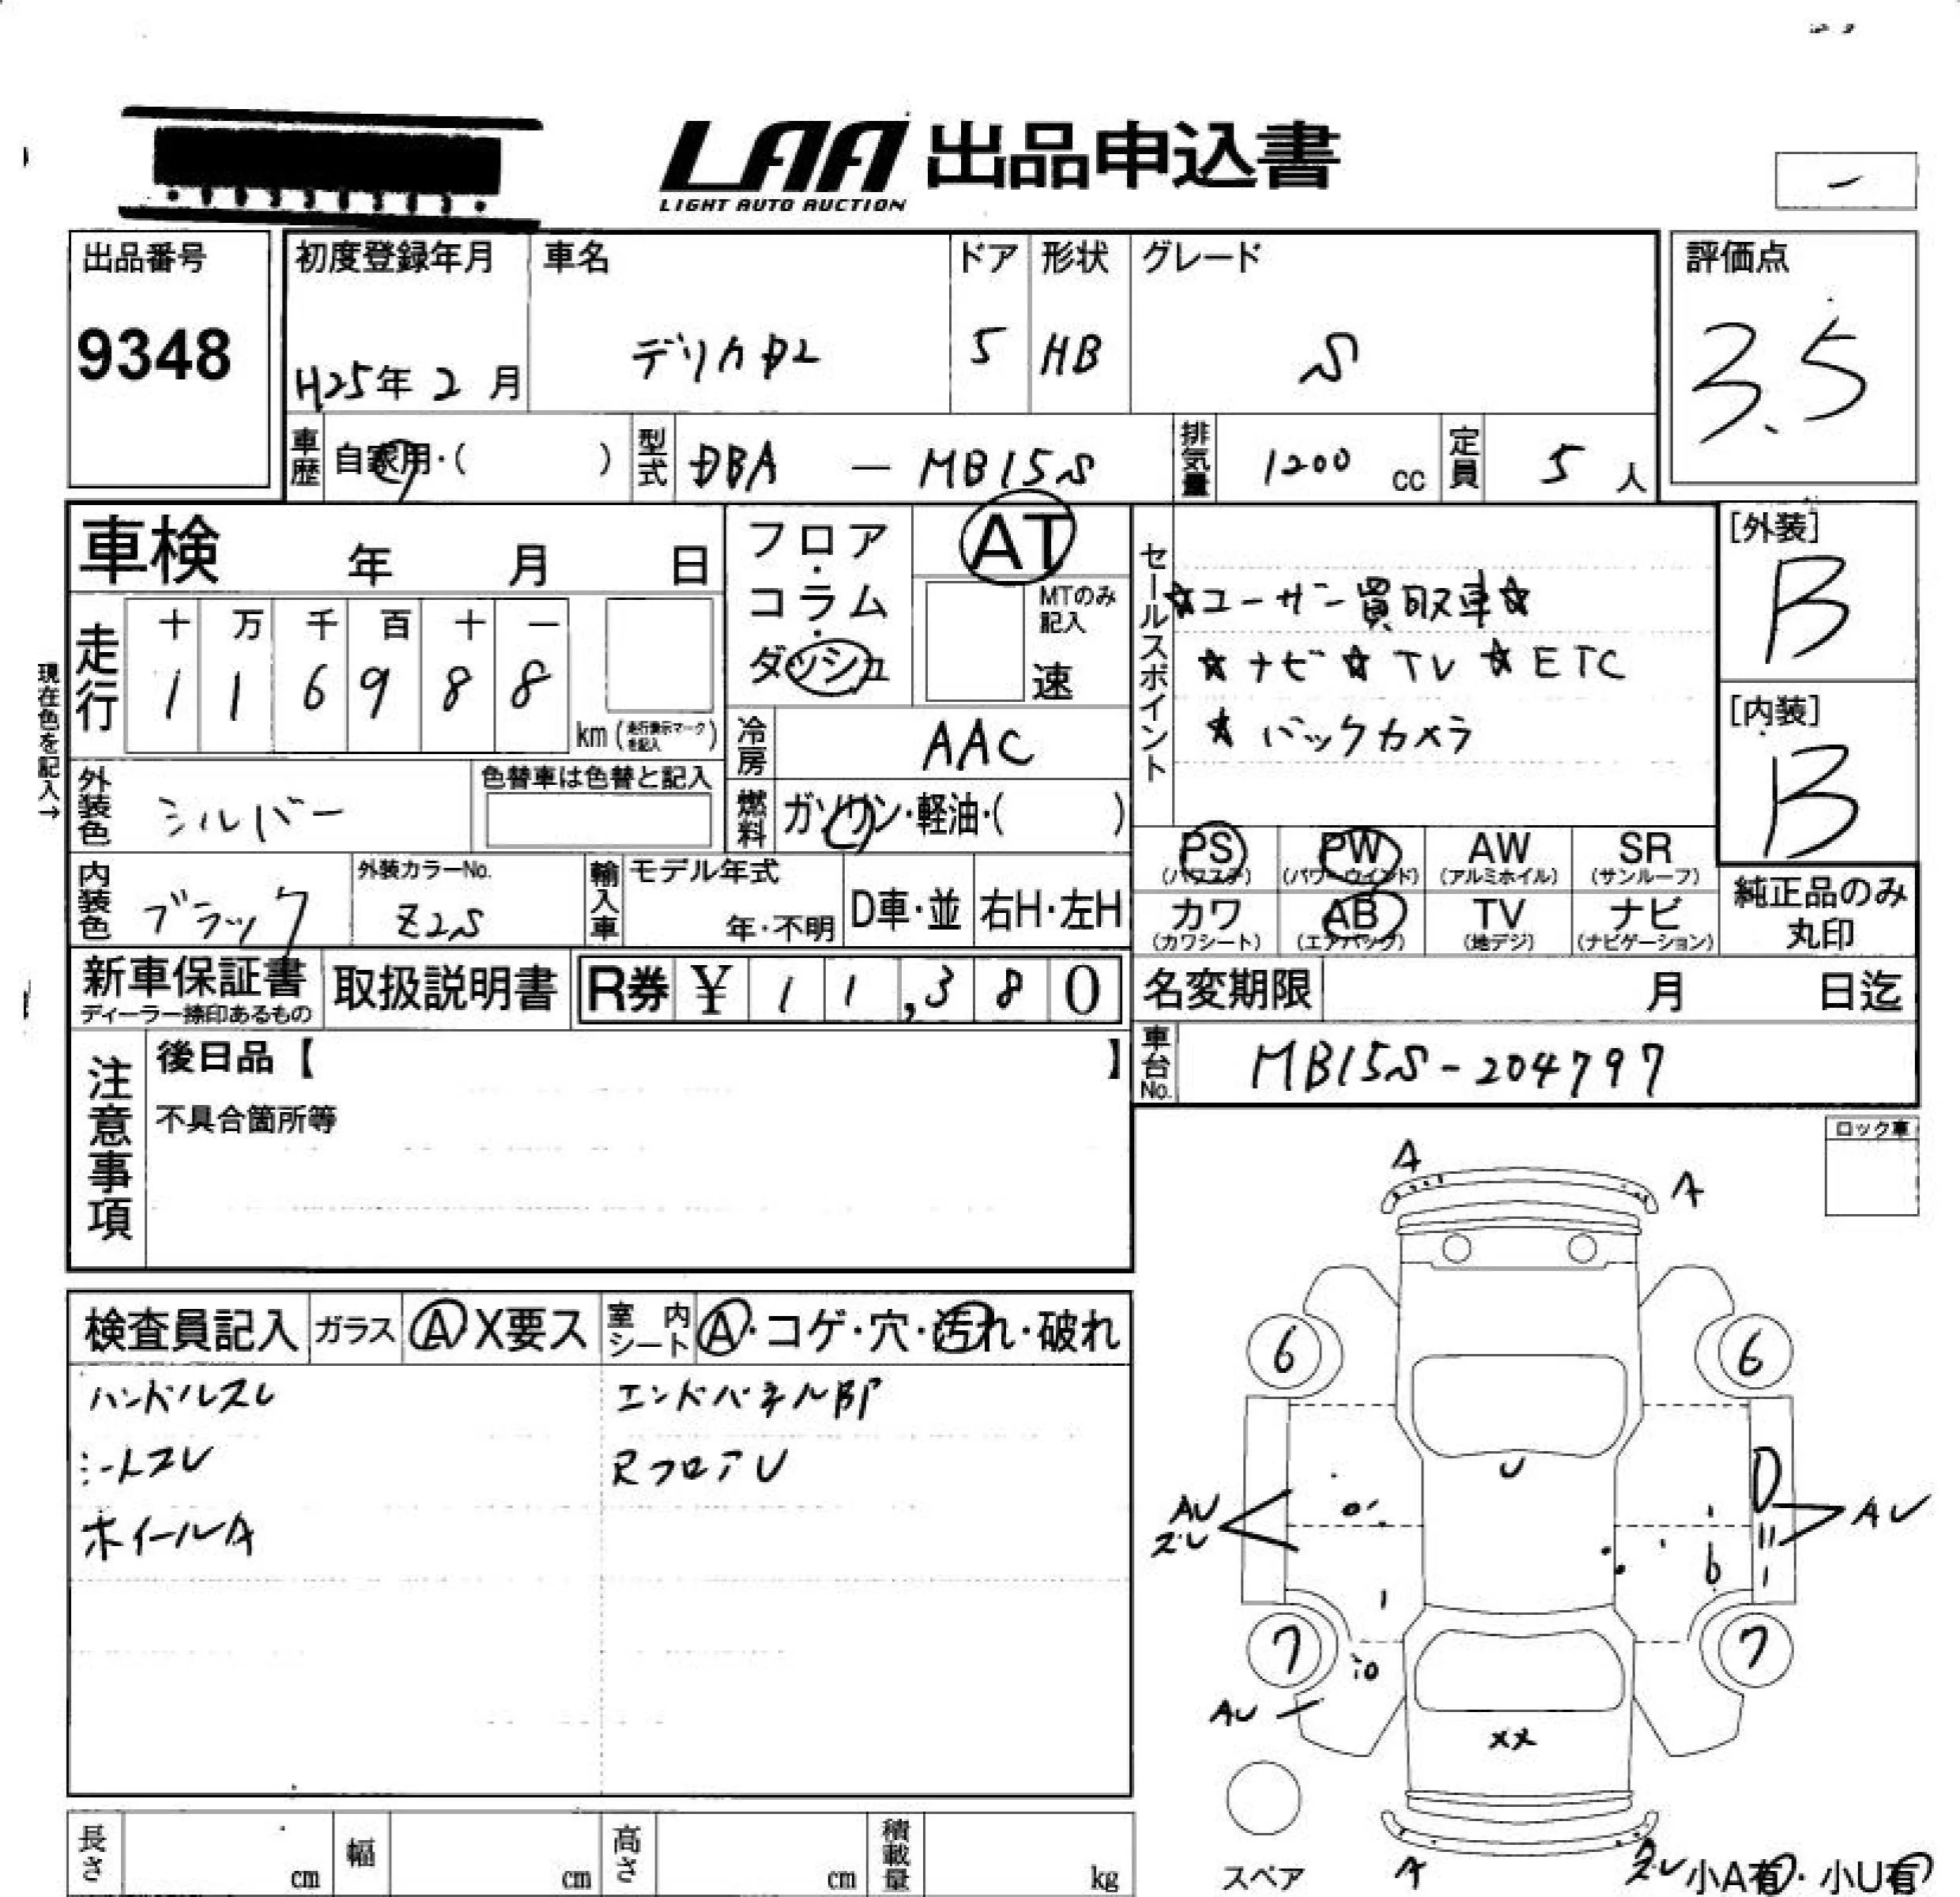 LAA 出品申込書
LIGHT AUTO AUCTION
出品番号
9348
初度登録年月
H25年 2 月
車名
デリカD2
ドア
5
形状
HB
グレード
S
評価点
3.5
車歴 自家用・( )
型式 DBA — MB15S
排気量 1200 cc
定員 5 人
車検 年 月 日
フロア・コラム・ダッシュ
AT
MTのみ記入
速
セールスポイント
☆ユーザー買取車☆
☆ナビ☆TV☆ETC
☆バックカメラ
[外装]
B
[内装]
B
現在色を記入→
走行
十 万 千 百 十 一
1 1 6 9 8 8
km (走行表示マークを記入)
冷房 AAC
外装色 シルバー
色替車は色替と記入
燃料 ガソリン・軽油・( )
内装色 ブラック
外装カラーNo.
Z2S
輸入車
モデル年式
年・不明
D車・並
右H・左H
PS
(パワステ)
PW
(パワーウインド)
AW
(アルミホイル)
SR
(サンルーフ)
カワ
(カワシート)
AB
(エアバック)
TV
(地デジ)
ナビ
(ナビゲーション)
純正品のみ
丸印
新車保証書
ディーラー捺印あるもの
取扱説明書
R券 ¥ 11,380
名変期限 月 日迄
車台No. MB15S-204797
注意事項
後日品【 】
不具合箇所等
ロック車
検査員記入
ガラス A X要ス
室内シート A・コゲ・穴・汚れ・破れ
ハンドルスレ
エンドパネル部P
シートスレ
RフロアU
ホイールA
A
A
6
6
U
AU
ズレ
AU
7
7
AU
XX
スペア
A
ズレ
小A有・小U有
長さ cm
幅 cm
高さ cm
積載量 kg